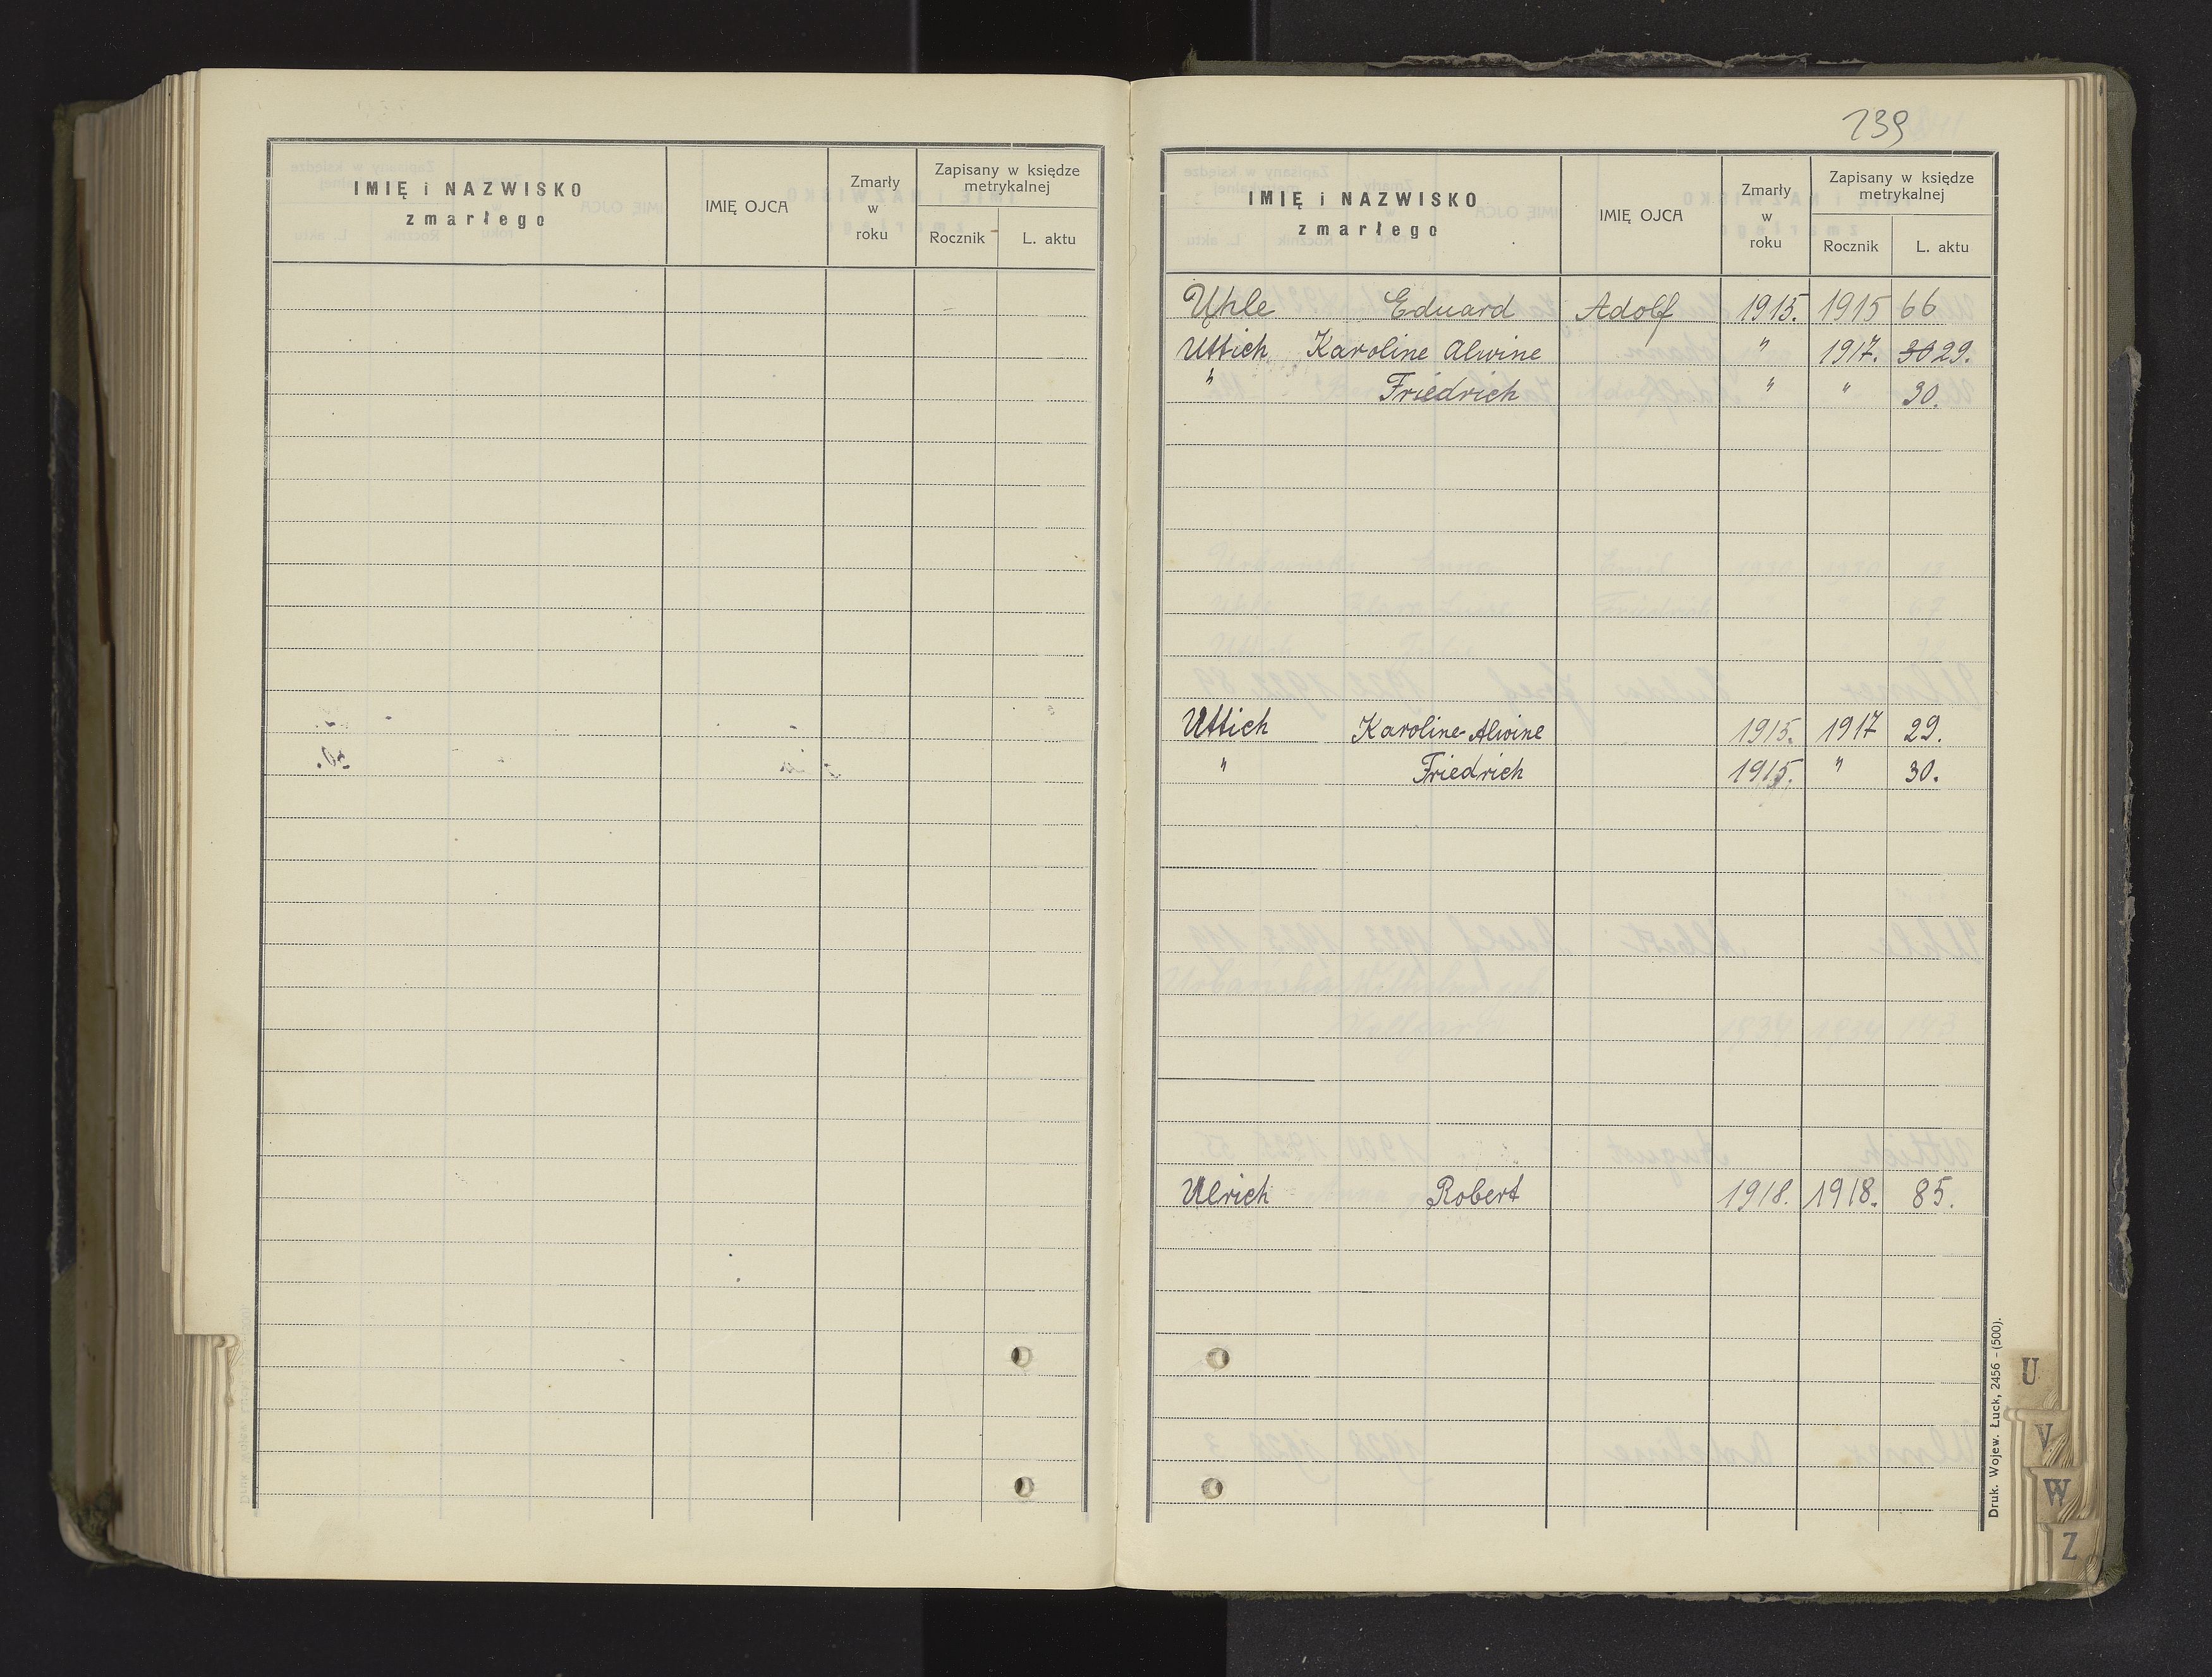 IMIĘ i NAZWISKO
zmarłego
IMIĘ OJCA
Zmarły
w
roku
Zapisany w księdze
metrykalnej
Rocznik
L. aktu
239
IMIĘ i NAZWISKO
zmarłego
IMIĘ OJCA
Zmarły
w
roku
Zapisany w księdze
metrykalnej
Rocznik
L. aktu
Uhle Eduard Adolf 1915. 1915 66
Uttich Karoline Alwine " 1917. 30 29.
" Friedrich " " 30.
Uttich Karoline Alwine 1915. 1917 29.
" Friedrich 1915. " 30.
Ulrich Robert 1918. 1918. 85.
Druk. Wojew. Łuck, 2456 - (500).
U
V
W
Z